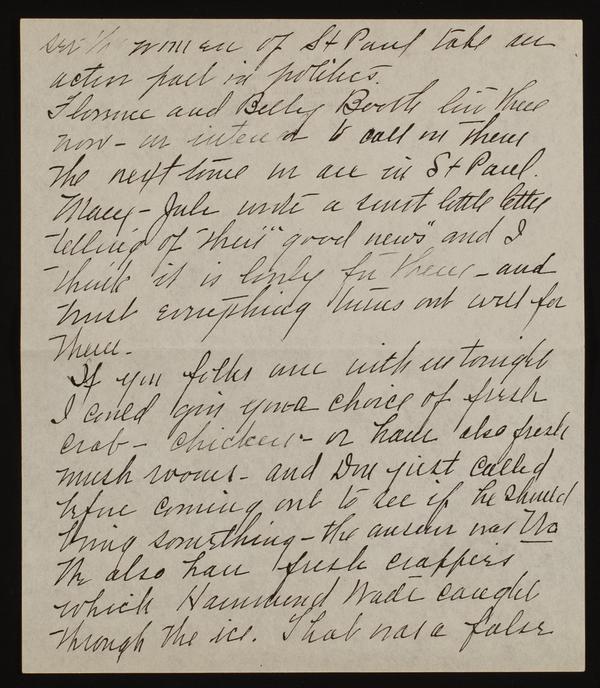 women of St Paul take an
active part in politics.
Florence and Betty Booth live there
now - we intend to call on them
the next time we are in St Paul.
Mary - Jule wrote a sweet little letter
telling of "their" "good news" and I
think it is lovely for them - and
trust everything turns out well for
them -
If you folks were with us tonight
I could give you a choice of fresh
crab - chicken - or ham also fresh
mush rooms - and Don just called
before coming out to see if he should
bring something - the answer was No
We also have fresh crappies
which Hammond Wade caught
through the ice. That was a false